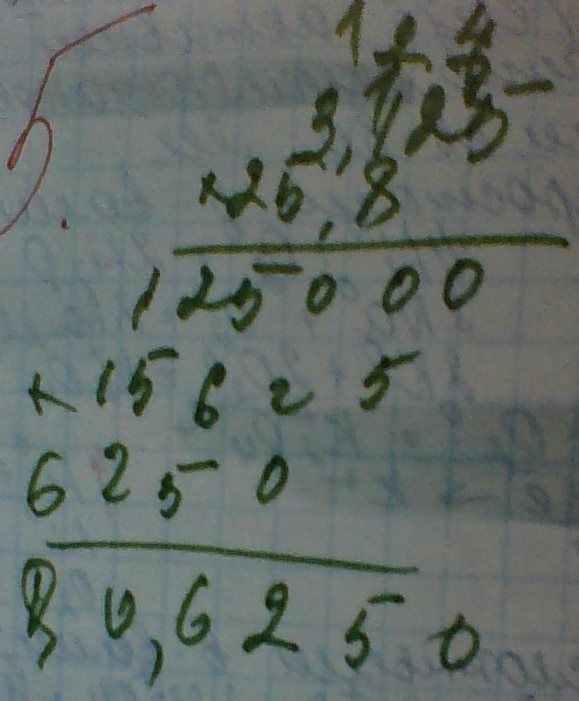 5.
1 2 4
1 2
3,125
×25,8
125000
+15625
6250
80,6250